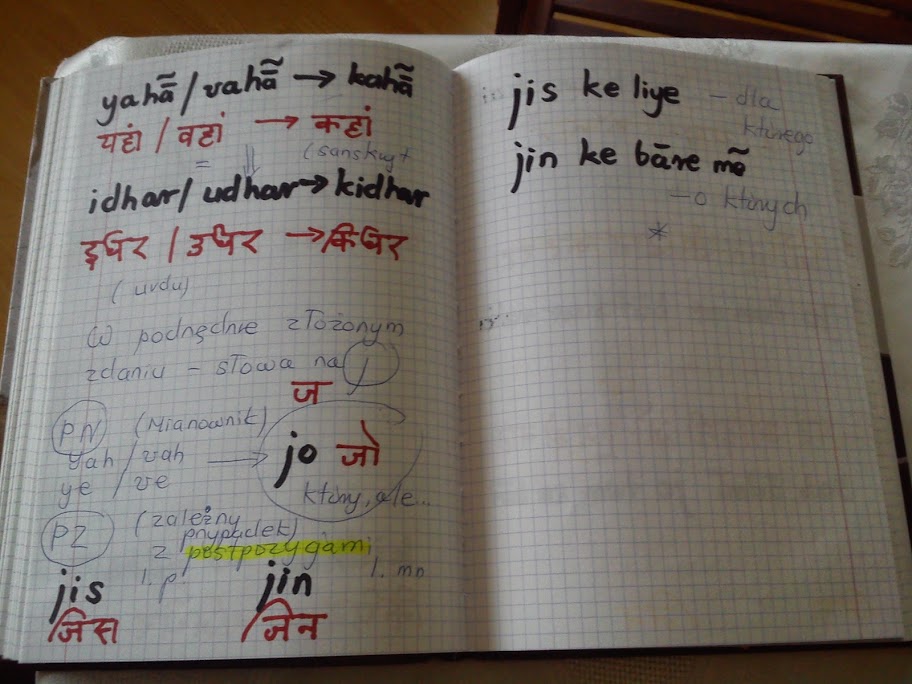 yahā̃ / vahā̃ → kahā̃
यहां / वहां → कहां
= (sanskryt
idhar / udhar → kidhar
इधर / उधर → किधर
(urdu)
W podrzędnie złożonym
zdaniu – słowa na j
ज
PN (Mianownik)
yah / vah → jo जो
ye / ve
który, ale...
PZ (zależny
przypadek)
z postpozycjami
jis l. p. jin l. mn
जिस जिन
jis ke liye – dla
którego
jin ke bāre mẽ
– o których
*